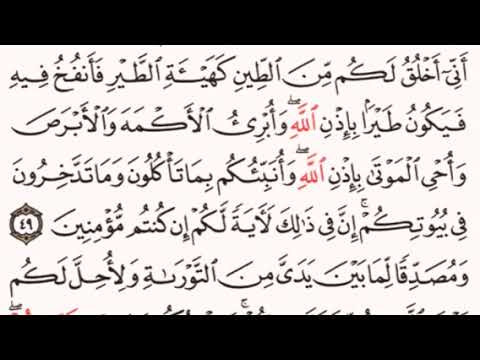 أَنِّىٓ أَخۡلُقُ لَكُم مِّنَ ٱلطِّينِ كَهَيۡـَٔةِ ٱلطَّيۡرِ فَأَنفُخُ فِيهِ
فَيَكُونُ طَيۡرَۢا بِإِذۡنِ ٱللَّهِۖ وَأُبۡرِئُ ٱلۡأَكۡمَهَ وَٱلۡأَبۡرَصَ
وَأُحۡىِ ٱلۡمَوۡتَىٰ بِإِذۡنِ ٱللَّهِۖ وَأُنَبِّئُكُم بِمَا تَأۡكُلُونَ وَمَا تَدَّخِرُونَ
فِى بُيُوتِكُمۡۚ إِنَّ فِى ذَٰلِكَ لَأٓيَةٗ لَّكُمۡ إِن كُنتُم مُّؤۡمِنِينَ ٤٩
وَمُصَدِّقٗا لِّمَا بَيۡنَ يَدَىَّ مِنَ ٱلتَّوۡرَىٰةِ وَلِأُحِلَّ لَكُم